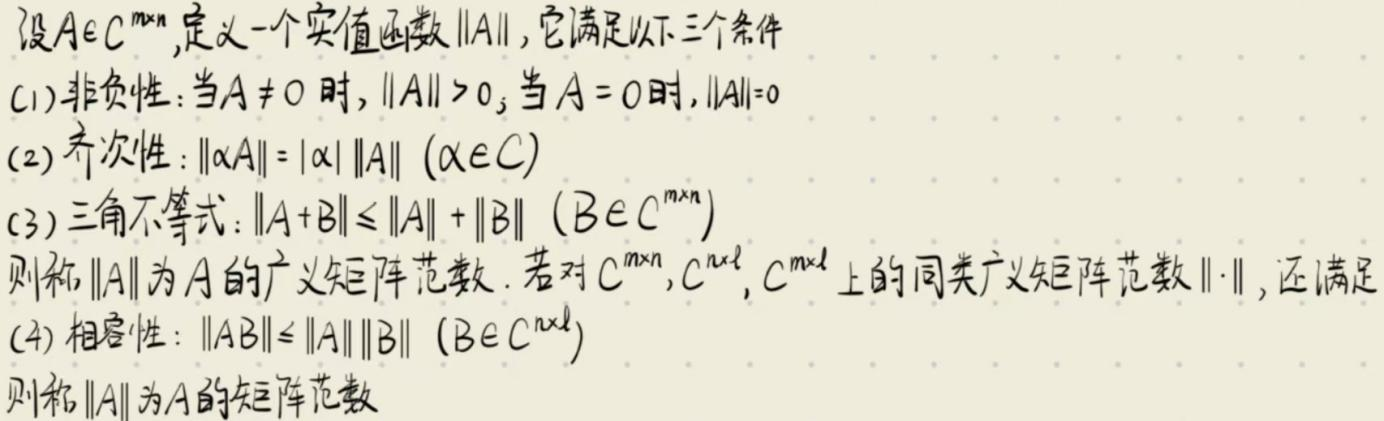 设A∈C^{m×n},定义一个实值函数||A||,它满足以下三个条件
(1)非负性:当A≠0时,||A||>0;当A=0时,||A||=0
(2)齐次性:||αA||=|α| ||A|| (α∈C)
(3)三角不等式:||A+B||≤||A||+||B|| (B∈C^{m×n})
则称||A||为A的广义矩阵范数.若对C^{m×n},C^{n×l},C^{m×l}上的同类广义矩阵范数||·||,还满足
(4)相容性:||AB||≤||A|| ||B|| (B∈C^{n×l})
则称||A||为A的矩阵范数